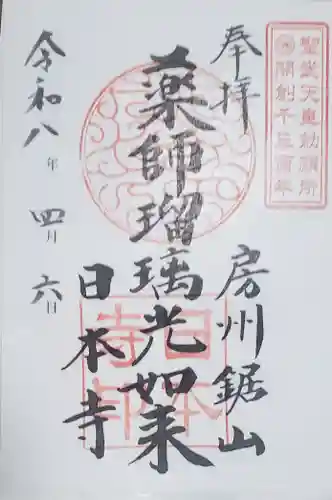 聖武天皇勅願所
開創千三百年
奉拝
房州鋸山
薬師瑠璃光如来
日本寺
令和八年 四月 六日
日本寺印